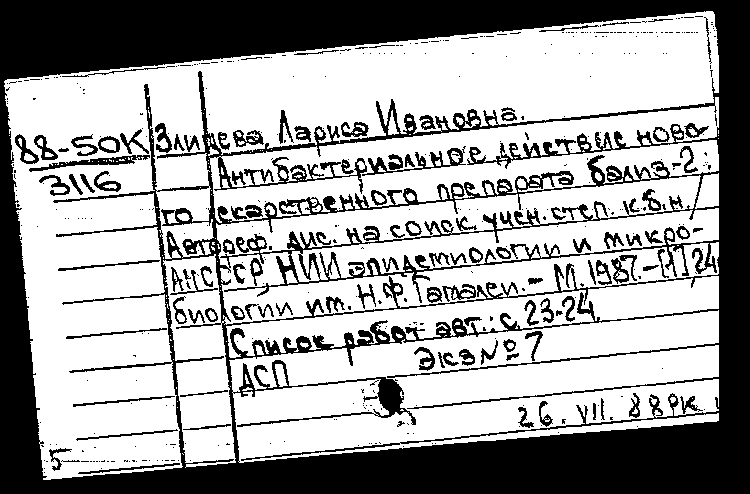 88-50К Злищева, Лариса Ивановна.
3116 Антибактериальное действие ново-
го лекарственного препарата бализ-2:
Автореф. дис. на соиск. учен. степ. к.б.н. /
АМСССР, НИИ эпидемиологии и микро-
биологии им. Н.Ф. Гамалеи. - М. 1987. - [1], 24
Список работ авт.: с. 23-24.
ДСП Экз № 7
26. VII. 88 РК
5